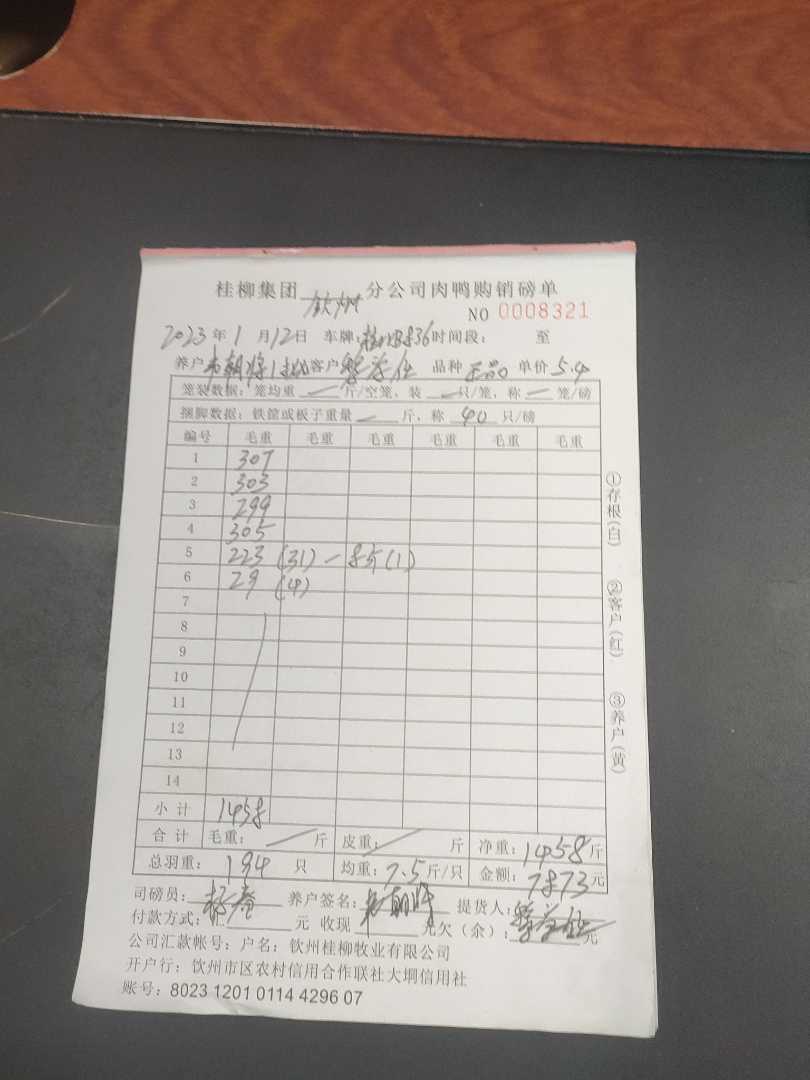 桂柳集团 钦州 分公司肉鸭购销磅单
NO 0008321
2023年 1 月 12日 车牌: 时间段: 至
养户 客户 品种 正品 单价 5.4
笼装数据: 笼均重 — 斤/空笼, 装 — 只/笼, 称 — 笼/磅
捆脚数据: 铁筐或板子重量 — 斤, 称 40 只/磅
编号 毛重 毛重 毛重 毛重 毛重 毛重
1 307
2 303
3 299
4 305
5 223 (31) - 8斤(1)
6 29 (4)
7
8
9
10
11
12
13
14
小计 1458
合计 毛重: 斤 皮重: 斤 净重: 1458斤
总羽重: 194 只 均重: 7.5斤/只 金额: 7873元
司磅员: 养户签名: 提货人:
付款方式: 汇 元 收现 元欠(余): 元
公司汇款帐号: 户名: 钦州桂柳牧业有限公司
开户行: 钦州市区农村信用合作联社大垌信用社
账号: 8023 1201 0114 4296 07
①存根(白) ②客户(红) ③养户(黄)